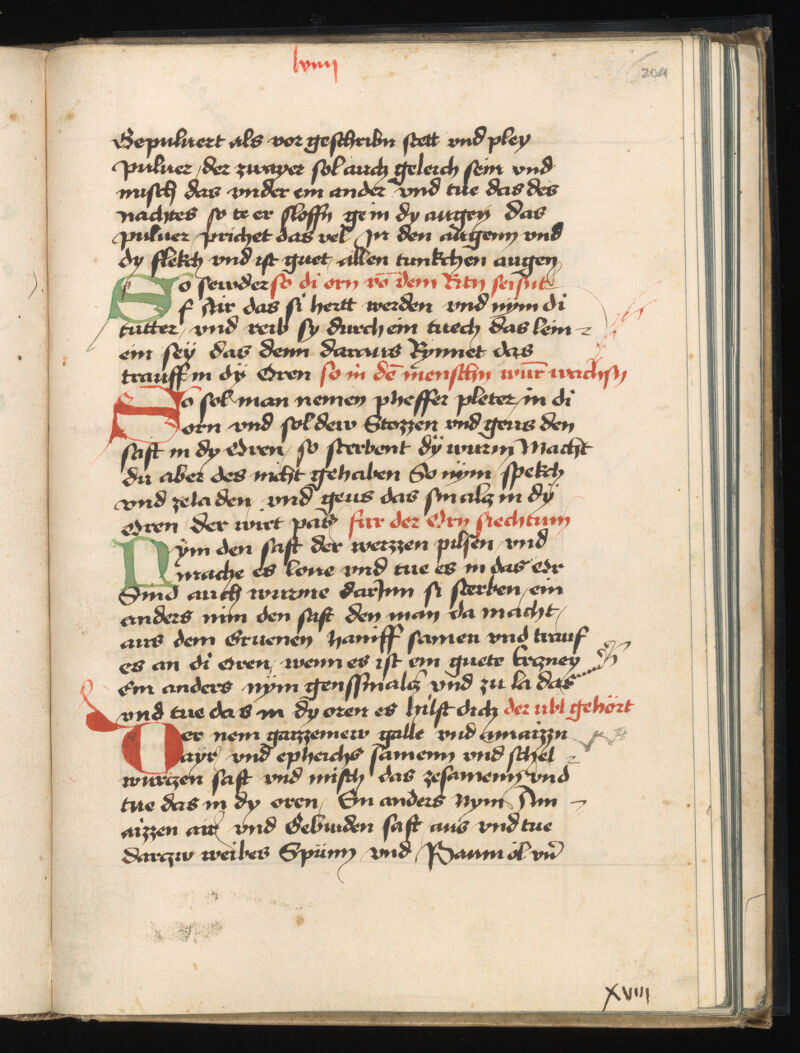 lviiij
204
Gepuluert als vor geschribn stett vnd pley
puluer / der zwayer sol auch geleich sein vnd
misch das vnder ein ander vnd tue das des
nachtes so te er sloffn ge in dy augen das
puluer prichet das vel in den augenn vnd
dy flekch vnd ist guet allen tunkchen augen
So sewder so di orn vō dem Ritn seisnt
f stir das si hertt werden vnd nym di
tutter / vnd reib sy durch ein tuech das lein
ein sey das denn daraus Rynnet das
trauff in dy Oren so in dē menschn würm wachsn
So sol man nemen pheffer pleter in di
orn vnd sol dew Stozzen vnd geus den
saft in dy Oren / so sterbent dy wurm Macht
du aber des nicht gehaben So nym spekch
vnd zeladen vnd geus das smalcz in dy
Oren der wirt pas für der Orn siechtum
Nym den saft der weizzen pilsen vnd
mache es lone vnd tue es in das Or
Sind auch wurme darInn si sterben / ein
anders nim den saft den man da macht /
aus dem Gruenen haniff samen vnd trauf
es an di oren / wenn es ist ein guete Erzney
Ein anders nym genssmalcz vnd zu la das
vnd tue das in dy oren es hilft dich der ubl gehört
Der nem gaizzemew galle vnd amaizzn
ayr vnd epheichs samenn vnd schel
wurczen saft vnd misch das zesamenn vnd
tue das in dy oren / Ein anders Nym Am
aizzen air vnd Gebunden saft aus vnd tue
darczw weibes Spünn vnd Paumöl vn̄
XVIII